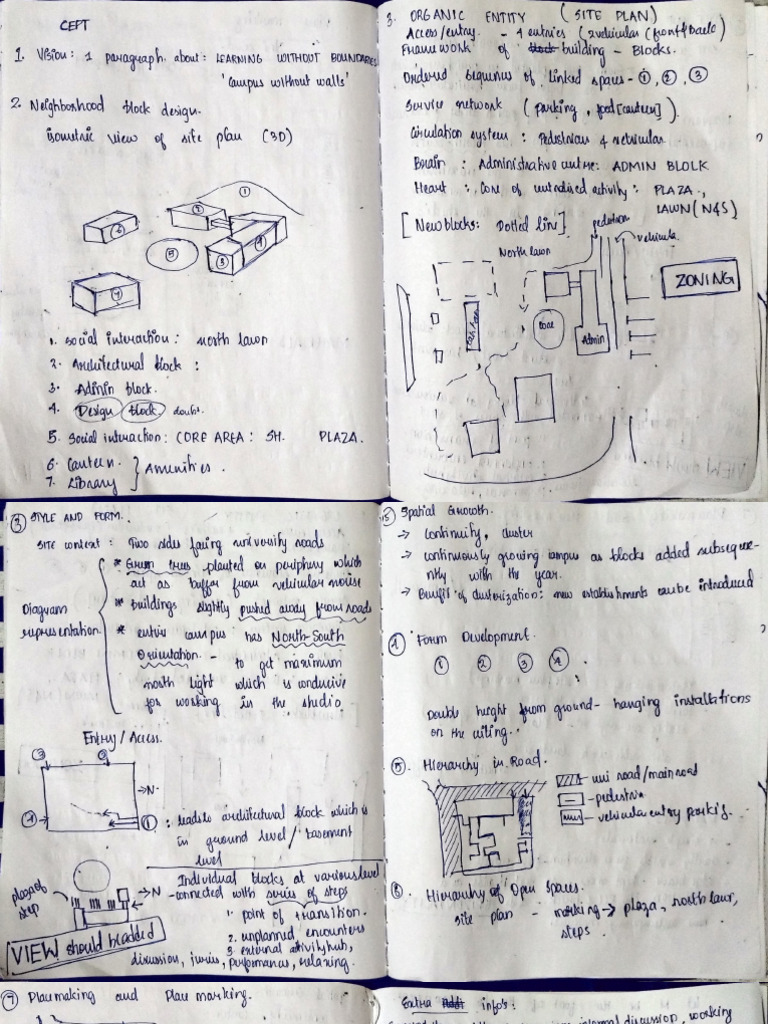 CEPT
1. Vision: 1 paragraph about: LEARNING WITHOUT BOUNDARIES
'Campus without walls'
2. Neighborhood block design.
isometric view of site plan (3D)
1
2
4
3
5
6
7
1. Social interaction: north lawn
2. Architectural block :
3. Admin block.
4. Design block doubt.
5. Social interaction: CORE AREA: SH. PLAZA.
6. Canteen. } Amenities.
7. Library
3. ORGANIC ENTITY (SITE PLAN)
Access/entry - 4 entries (2 vehicular (front & back)
Framework of building - Blocks.
Ordered sequences of linked spaces - 1, 2, 3
Service network (parking, food [canteen]).
Circulation system: Pedestrian & vehicular
Brain : Administrative centre: ADMIN BLOCK
Heart : Core of centralised activity: PLAZA.,
LAWN (N&S)
[New blocks: Dotted line]
pedestrian
vehicular
North lawn
ZONING
Core
Admin
3 STYLE AND FORM.
Site context : Two sides facing university roads
Diagram representation
* Green trees planted on periphery which
act as buffer from vehicular noise
* buildings slightly pushed away from roads
* entire campus has North-South
Orientation - to get maximum
north light which is conducive
for working in the studio
Entry/Access.
3
2
→N
4
1 : leads to architectural block which is
in ground level/basement
level
Individual blocks at various level
connected with series of steps
1. point of transition.
2. unplanned encounters
3. external activity hub,
discussion, juries, performances, relaxing.
→N
VIEW should be added
5 Spatial Growth.
→ Continuity, cluster
→ continuously growing campus as blocks added subseque-
ntly with the year.
→ Benefit of clusterization: new establishments can be introduced
4 Form Development.
1 2 3 4
Double height from ground - hanging installations
on the ceiling.
5 Hierarchy in Road.
- uni road/main road
- pedestrian
- vehicular entry parking.
6 Hierarchy of Open Spaces.
site plan - marking → plaza, north lawn,
steps.
7 Placemaking and Place marking.
Extra info's:
discussion, working